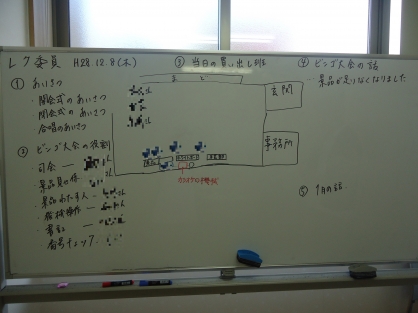 レク委員 H28.12.8(木)
① あいさつ
・開会式のあいさつ
・閉会式のあいさつ
・合唱のあいさつ
② ビンゴ大会の役割
・司会 ー
・景品員の係
・景品わたす人 ー
・機械操作 ー
・書記 ー
・番号チェック
③ 当日の買い出し班
まど
玄関
事務所
④ ビンゴ大会の話
・景品が足りなくなりました
⑤ 1月の話